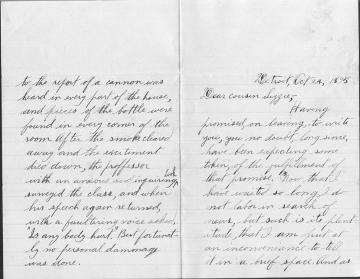 Detroit, Oct 24, 1885
Dear cousin Lizzie,
Having
promised, on leaving, to write
you, you no doubt, long since,
have been expecting some
token of the fulfillment of
that promise. Now that I
have waited so long I do
not labor in search of
news, but such is its plent-
itude that I am put at
an inconvenience to tell
it in a brief space. And as
to the report of a cannon was
heard in every part of the house,
and pieces of the bottle were
found in every corner of the
room. After the smoke cleared
away and the excitement
died down, the professor
with an anxious and inquiring look
surveyed the class, and when
his speech again returned,
with a faultering voice asked,
"Is any body hurt." But fortunat-
ly no personal dammage
was done.